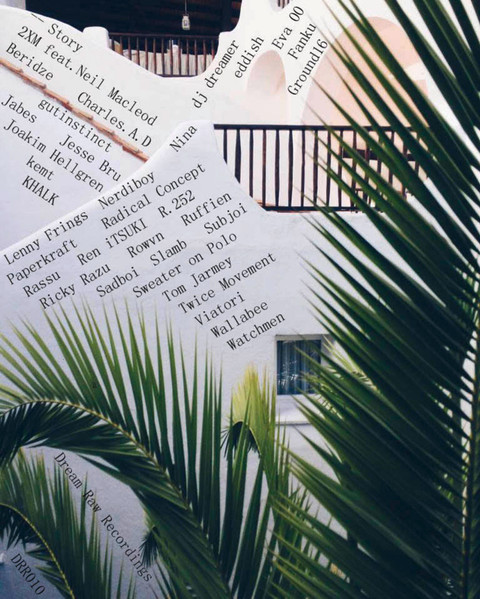 1 Story
2XM feat.Neil Macleod
Beridze Charles.A.D
gutinstinct
Jabes Jesse Bru
Joakim Hellgren
kemt
KHALK
dj dreamer
eddish
Eva 00
Fanku
Ground16
Lenny Frings Nerdiboy Nina
Paperkraft Radical Concept
Rassu Ren iTSUKI R.252
Ricky Razu Rowvn Ruffien
Sadboi Slamb Subjoi
Sweater on Polo
Tom Jarmey
Twice Movement
Viatori
Wallabee
Watchmen
Dream Raw Recordings
DRR010